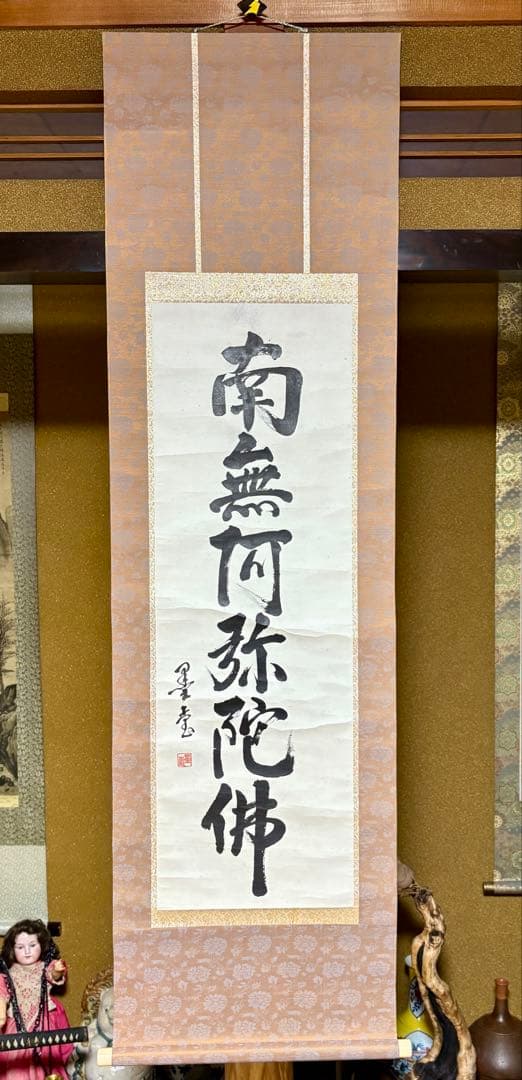 南無阿弥陀佛
墨